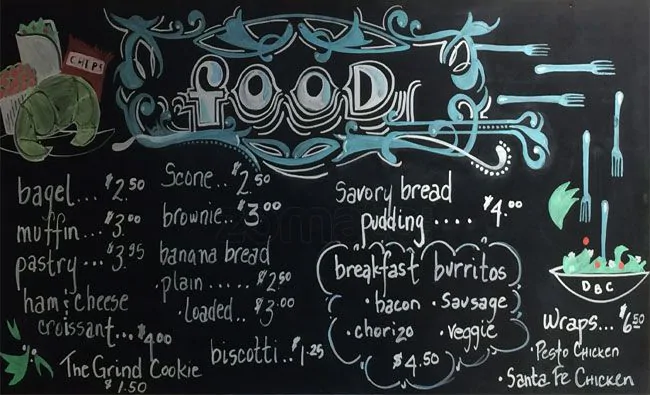 CHIPS
FOOD
bagel... $2.50
muffin... $3.00
pastry... $3.95
ham & cheese
croissant... $4.00
The Grind Cookie
$1.50
Scone.. $2.50
brownie.. $3.00
banana bread
plain ..... $2.50
• Loaded.. $3.00
biscotti.. $1.25
Savory bread
pudding .... $4.00
breakfast burritos
• bacon • Sausage
• chorizo • veggie
$4.50
DBC
Wraps... $6.50
• Pesto Chicken
• Santa Fe Chicken